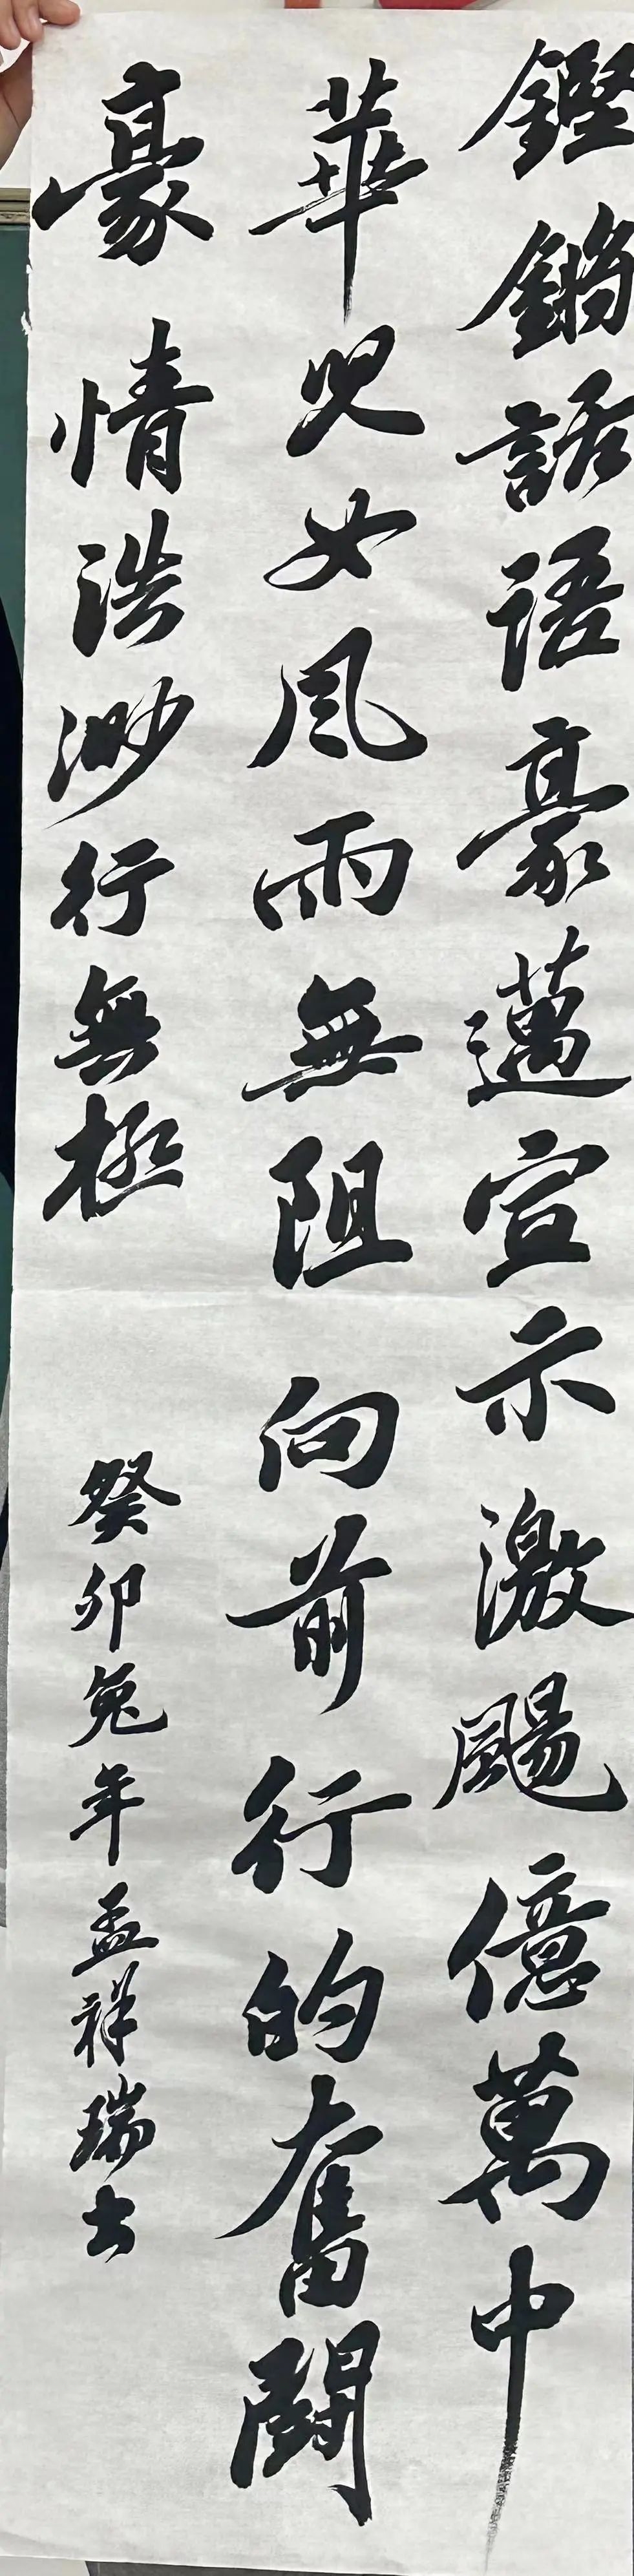 鏗鏘話語豪邁宣示激颺億萬中
華兒女風雨無阻向前行的奮鬪
豪情浩渺行無極
癸卯兔年孟祥瑞書